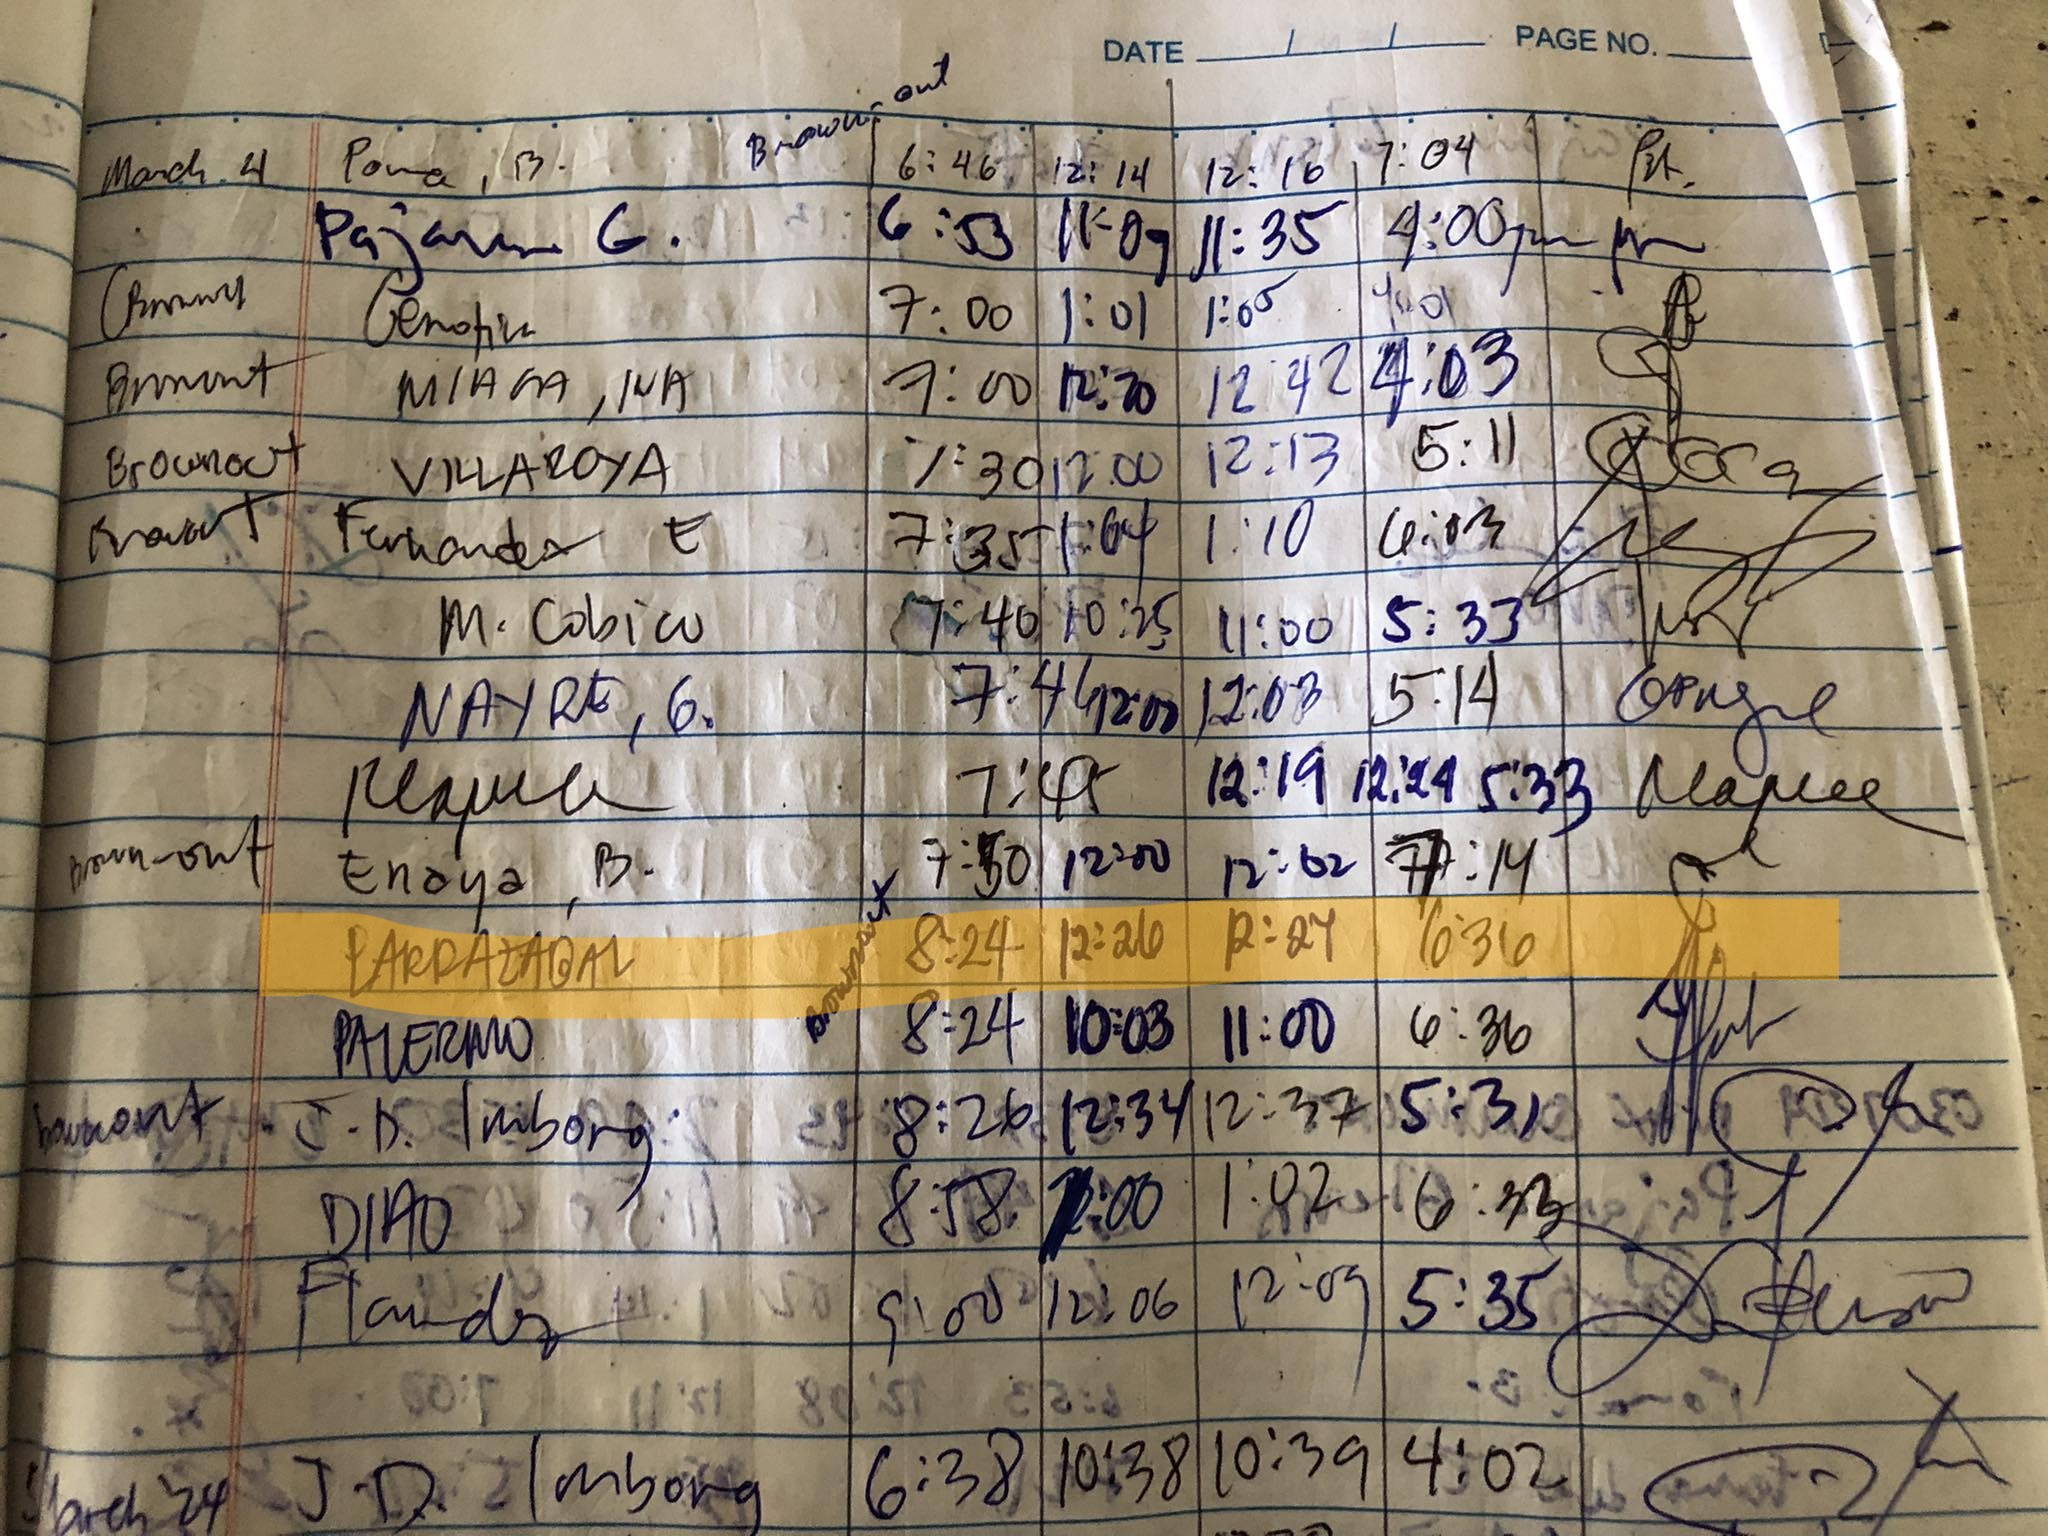 DATE / / PAGE NO.
Brown-out
March 4 Poma, B. 6:46 12:14 12:16 7:04
G. 6:53 11:09 11:35 4:00pm
7:00 1:01 1:05
MIAGA, INA 7:00 12:42 4:03
Brownout VILLAROYA 7:30 12:00 12:13 5:11
Fernandez E 7:35 1:04 1:10 6:03
M. Cobico 7:40 10:25 11:00 5:33
NAYRE, G. 7:46 12:00 12:03 5:14
7:45 12:19 12:24 5:33
Brown-out Enaya, B. 7:50 12:00 12:02 7:14
PARRAZABAL 8:24 12:26 12:27 6:36
Brownout
PALERMO 8:24 10:03 11:00 6:36
brownout J.D. Imbong 8:26 12:34 12:37 5:31
DIAO 8:58 12:00 1:02 6:33
9:00 12:06 12:09 5:35
March '24 J.D. Imbong 6:38 10:38 10:39 4:02